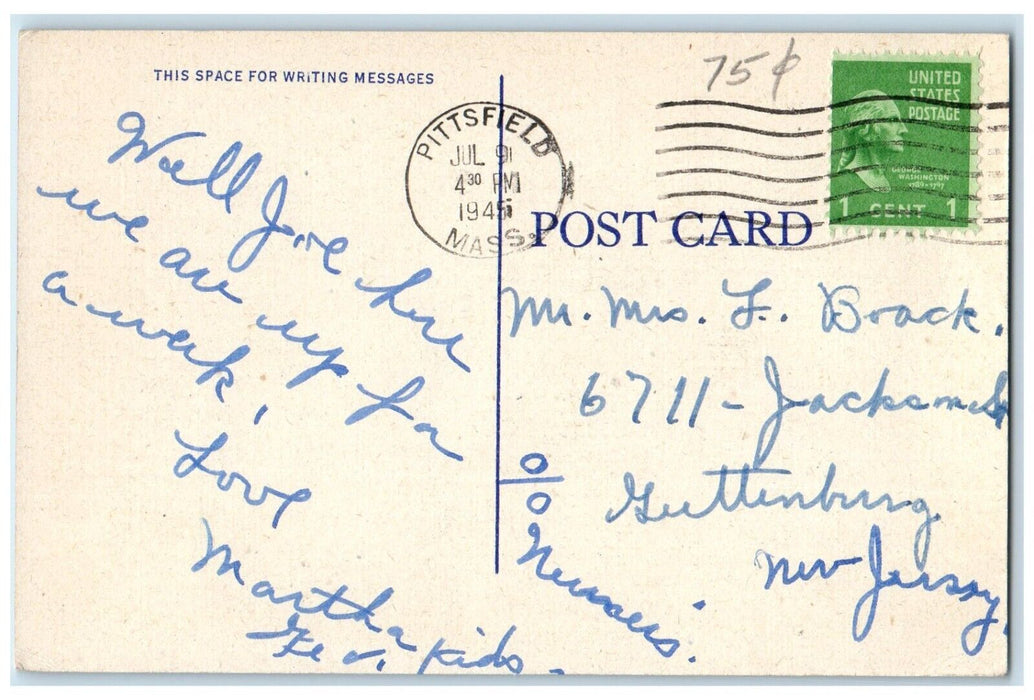 THIS SPACE FOR WRITING MESSAGES
Well Joe here
we are up for
a week,
Love
Martha
Geo. kids.
75¢
PITTSFIELD
JUL 9
4 30 PM
1945
MASS.
UNITED
STATES
POSTAGE
GEORGE
WASHINGTON
1789-1797
1 CENT 1
POST CARD
Mr. Mrs. F. Brack.
6711 - Jackson St
Guttenburg.
New Jersey.
%